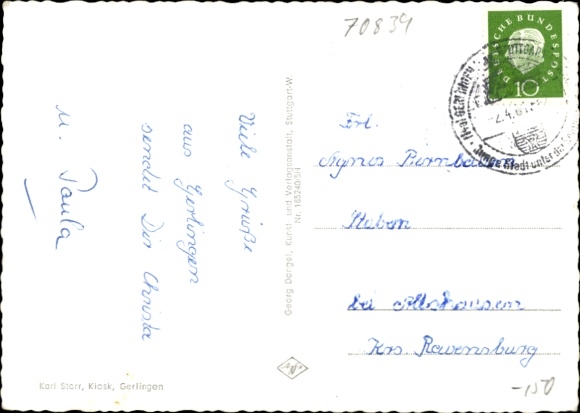 70834
Viele Grüße
aus Gerlingen
sendet Dir Christa
u. Paula
Georg Dangel, Kunst- und Verlagsanstalt, Stuttgart-W
Nr. 165240/5H
Karl Storr, Kiosk, Gerlingen
DEUTSCHE BUNDESPOST
10
GERLINGEN
-2.4.61
Junge Stadt unter der
Frl.
Agnes Birnbaum
Stuben
bei Altshausen
Krs Ravensburg
-150